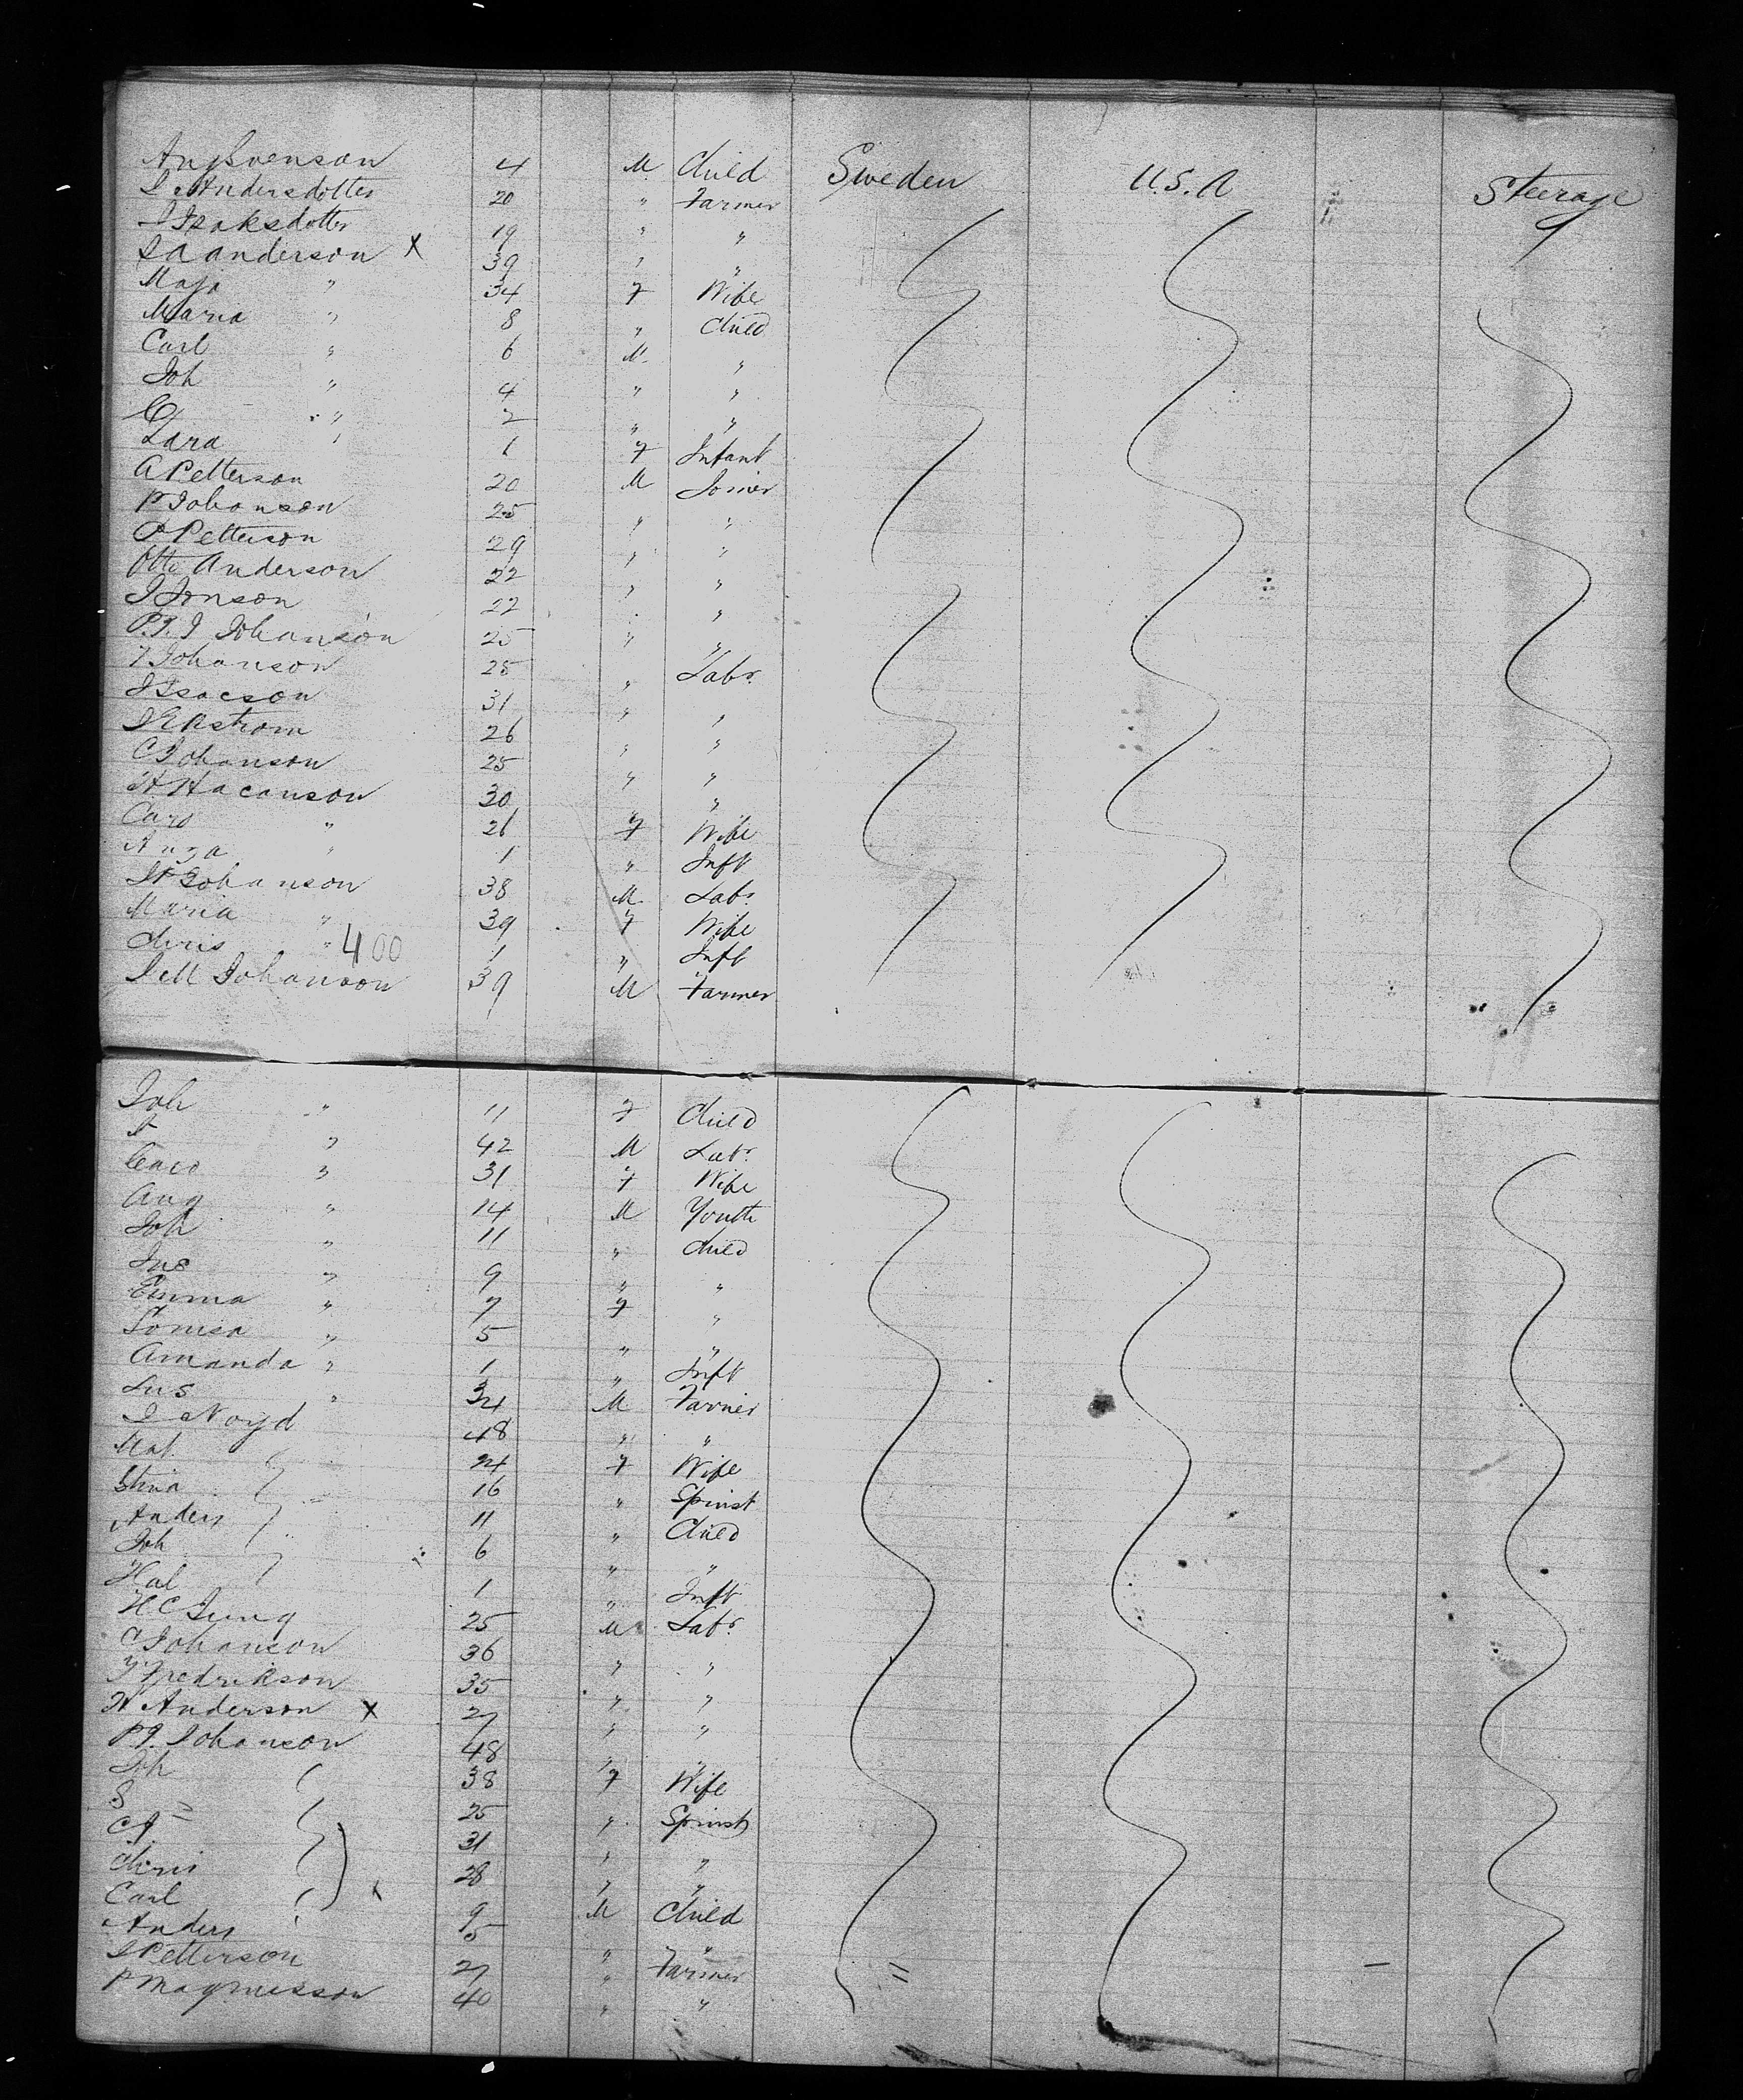 Aug Svenson 4 M. Child Sweden U.S.A Steerage
I Andersdotter 20 " Farmer
I Isaksdotter 19 " "
S A Anderson X 39 " "
Maja " 34 F Wife
Maria " 8 " Child
Carl " 6 M. "
Joh " 4 " "
C " 2 " "
Lara " 1 F Infant
A Petterson 20 M Joiner
P Johanson 25 " "
P Petterson 29 " "
Otto Anderson 22 " "
I Jonson 22 " "
P. J. I Johanson 25 " "
F Johanson 25 " Labr.
I Isacson 31 " "
I Ekstrom 26 " "
C Johanson 25 " "
A Hacanson 30 " "
Caro " 26 F Wife
Auga " 1 " Inft
Johanson 38 M. Labr.
Maria " 39 F Wife
Chris " 400 1 " Inft
I M Johanson 39 M Farmer
Joh " 11 F Child
" 42 M Labr.
Caro " 31 F Wife
Aug " 14 M Youth
Joh " 11 " Child
Jus " 9 " "
Emma " 7 F "
Lovisa " 5 " "
Amanda " 1 " Inft
Lus " 34 M Farmer
I Noyd 48 " "
Mat 24 F Wife
Stina 16 " Spinst
Anders 11 " Child
Joh 6 " "
Hal 1 " Inft
H C Jung 25 M Labr.
C Johanson 36 " "
F Fredrikson 35 " "
A Anderson X 27 " "
P. J. Johanson 48 " "
Joh 38 F Wife
S 25 " Spinst
C A 31 " "
Chris 28 " "
Carl 9 M Child
Anders 5 " "
I Petterson 27 " Farmer
P Magnusson 40 " "